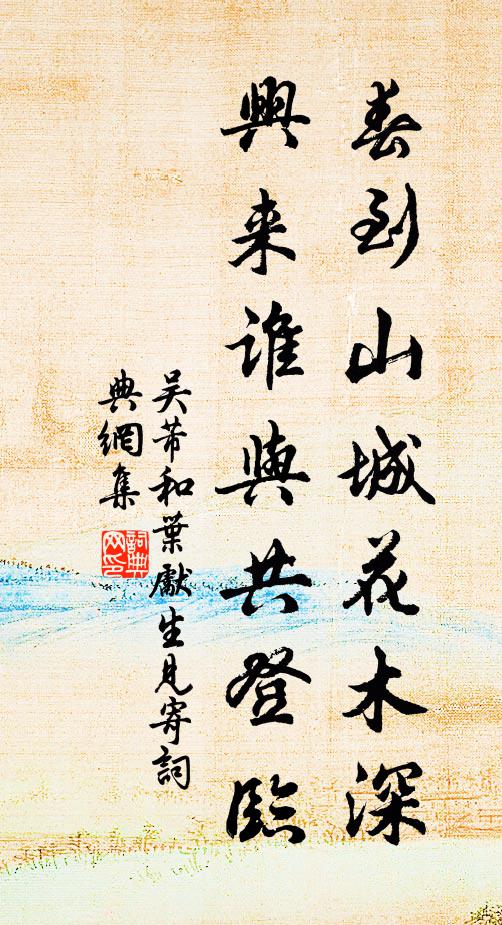 春到山城花木深
興来誰與共登臨
吴芾和葉獻生見寄詞
典網集
詞典
网印